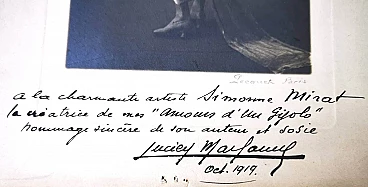 Paris
A la charmante artiste Simonne Mirat
la créatrice de mes "Amours d'Un Gigolo"
hommage sincère de son auteur et sosie
Oct. 1919.